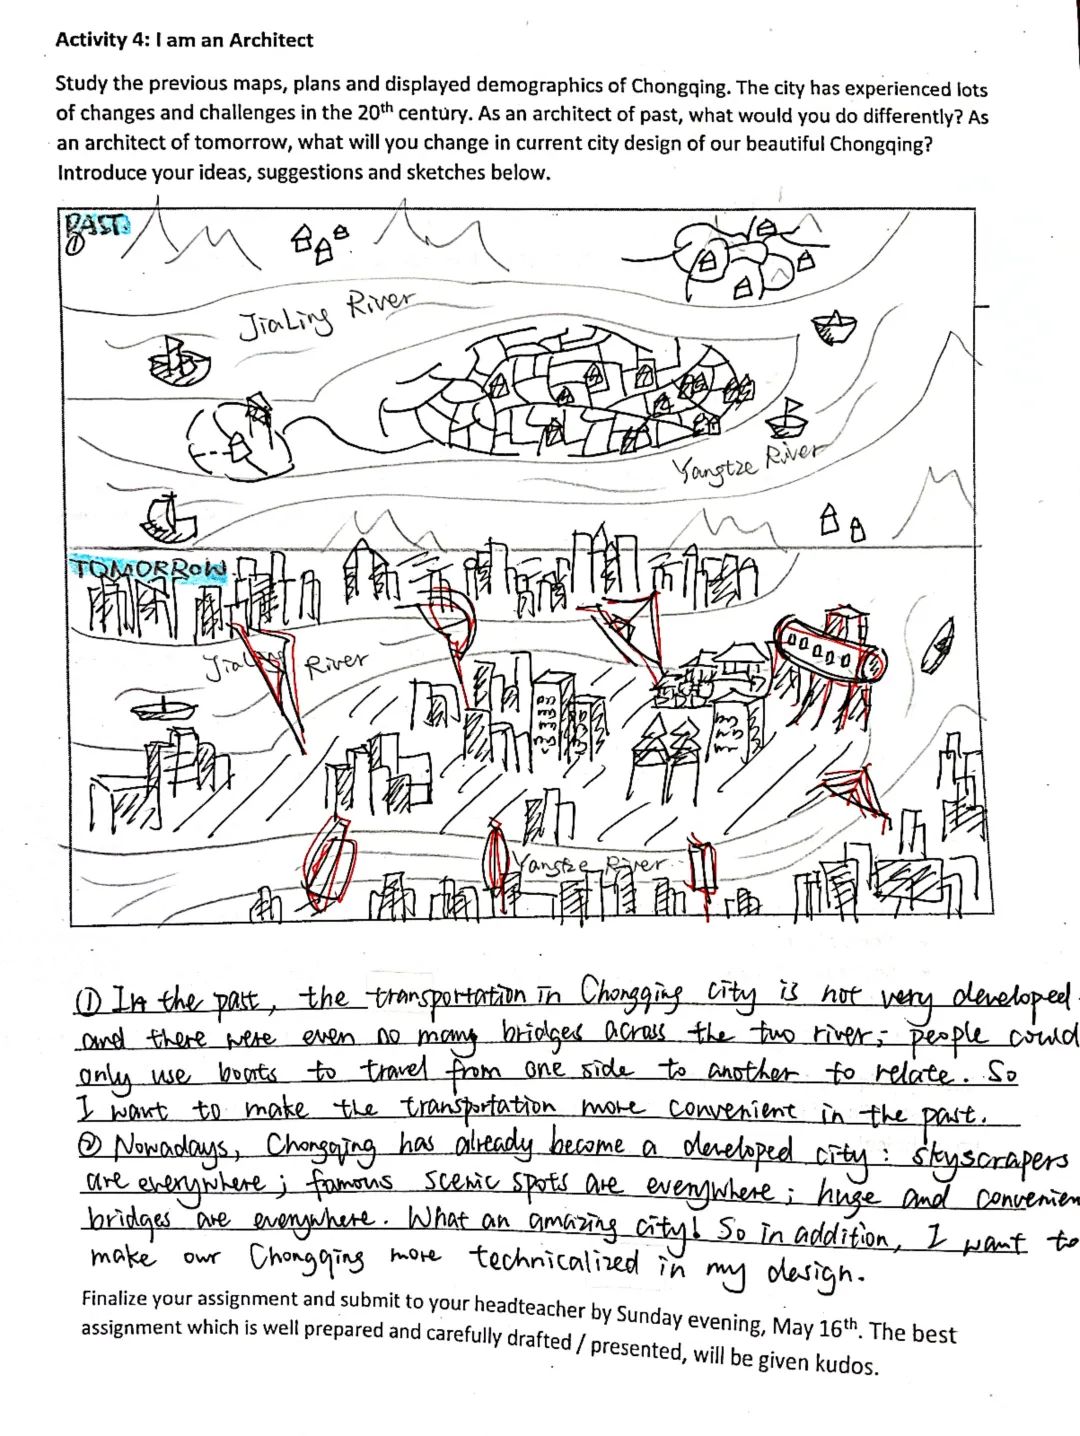 Activity 4: I am an Architect
Study the previous maps, plans and displayed demographics of Chongqing. The city has experienced lots
of changes and challenges in the 20th century. As an architect of past, what would you do differently? As
an architect of tomorrow, what will you change in current city design of our beautiful Chongqing?
Introduce your ideas, suggestions and sketches below.
PAST
①
JiaLing River
Yangtze River
TOMORROW
Jialing River
Yangtze River
① In the past, the transportation in Chongqing city is not very developed
and there were even no many bridges across the two river; people could
only use boats to travel from one side to another to relate. So
I want to make the transportation more convenient in the past.
② Nowadays, Chongqing has already become a developed city: skyscrapers
are everywhere; famous scenic spots are everywhere; huge and convenien
bridges are everywhere. What an amazing city! So in addition, I want to
make our Chongqing more technicalized in my design.
Finalize your assignment and submit to your headteacher by Sunday evening, May 16th. The best
assignment which is well prepared and carefully drafted / presented, will be given kudos.